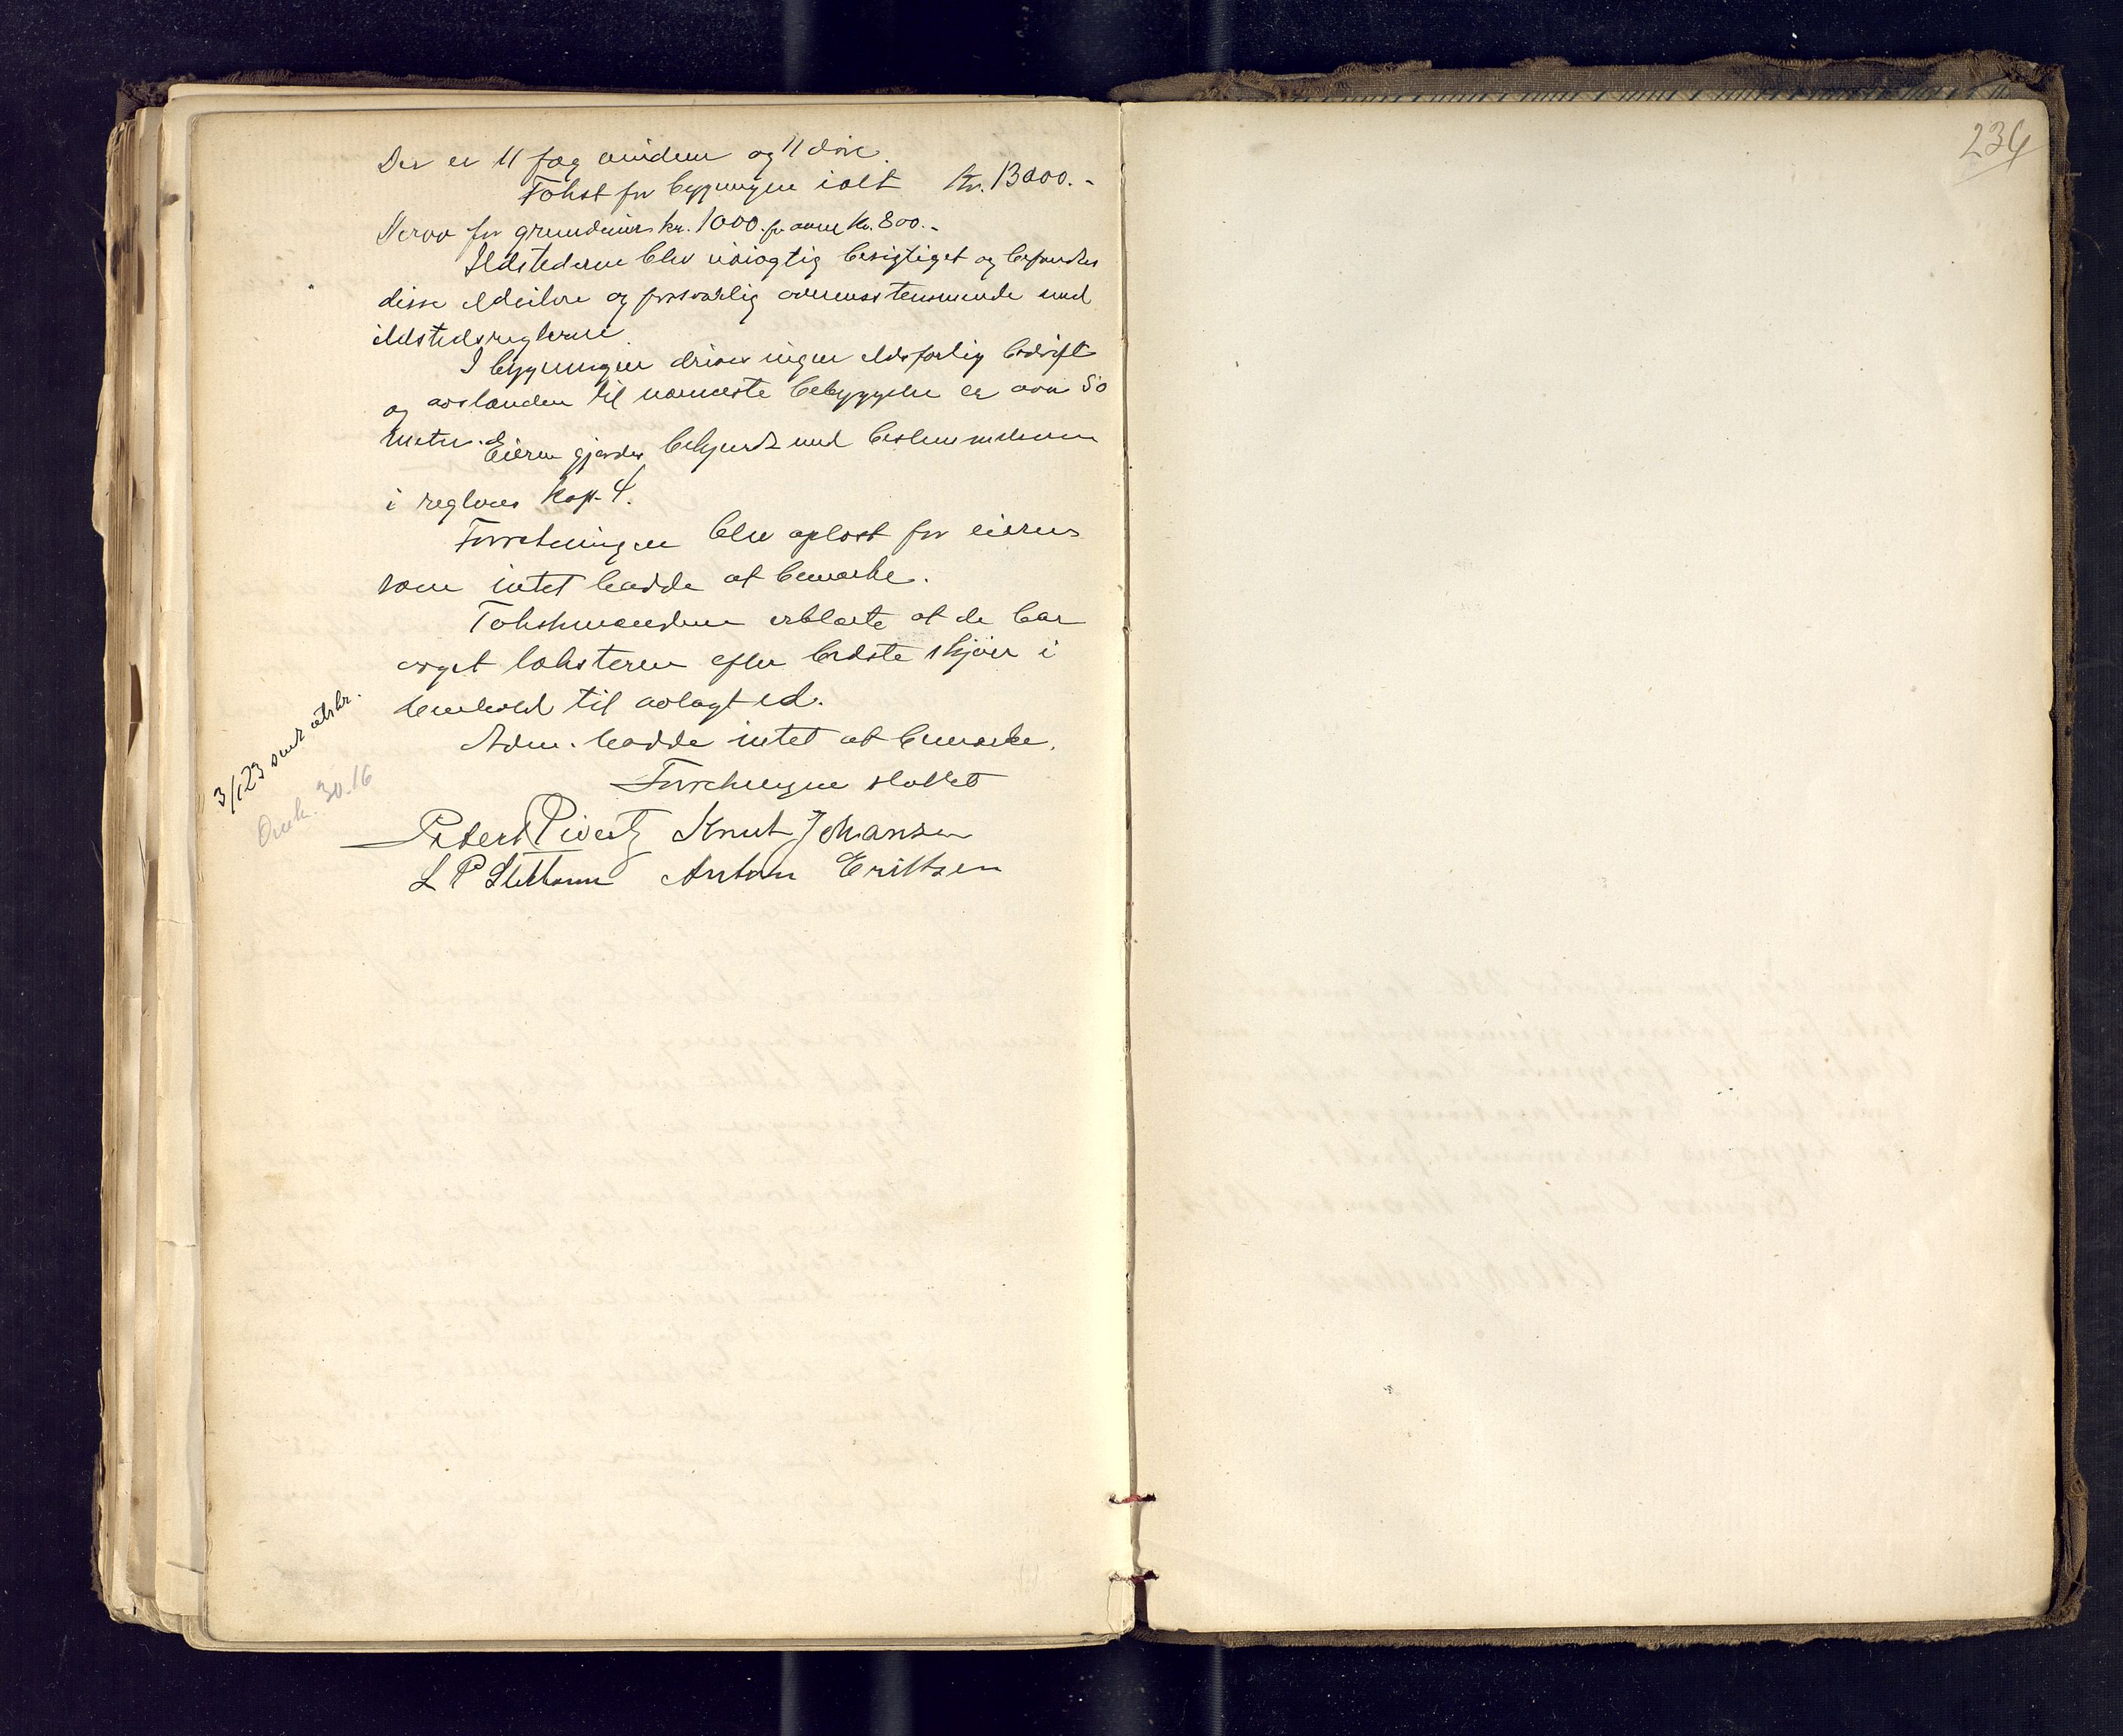 Der er 11 fag vinduer og 11 döre.
Takst for bygningen ialt kr. 13000.-
Herav for grundmur kr. 1000. for ovne kr. 800.-
Ildstederne blev nöiagtig besigtiget og befandtes
disse ildsikre og forsvarlig overensstemmende med
ildstedsreglerne.
I bygningen drives ingen ildsfarlig bedrift
og avstanden til nærmeste bebyggelse er over 50
meter. Eieren gjordes bekjendt med bestemmelserne
i reglenes kap. 4.
Forretningen blev oplæst for eieren
som intet hadde at bemærke.
Takstmændene erklærte at de har
avgit taksteren efter bedste skjön i
henhold til avlagt ed.
Adm. hadde intet at bemærke.
Forretningen sluttet
Knut Johansen
L P Anton Eriksen
3/1 23 sendt utskr.
30.16
234